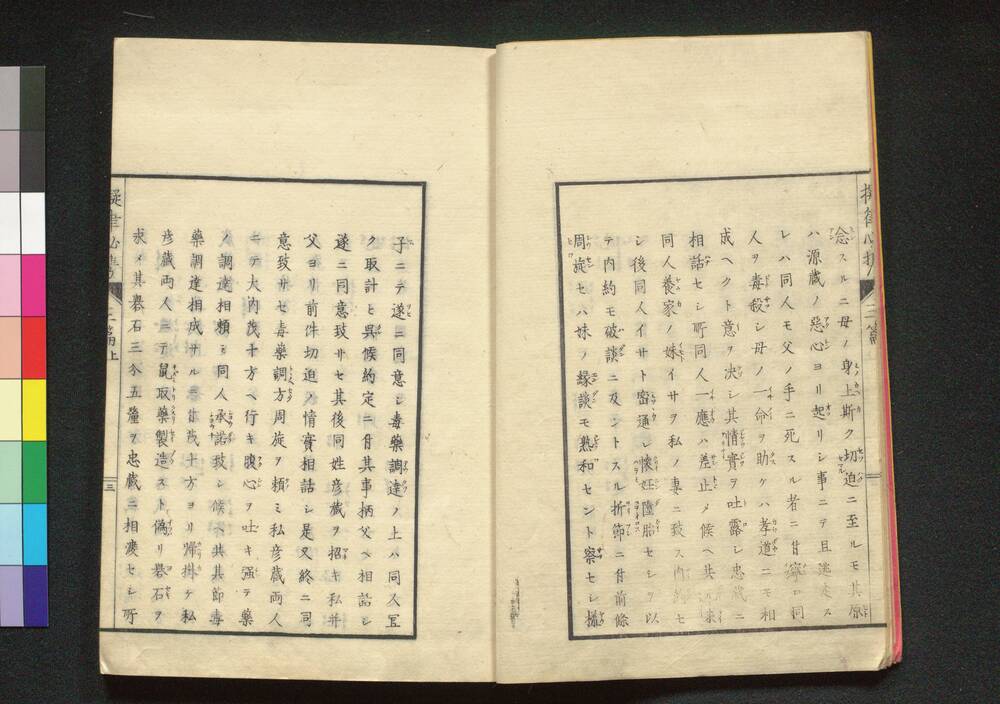 念スルニ母ノ身上斯ク切迫ニ至ルモ其原
ハ源蔵ノ惡心ヨリ起リシ事ニテ且遷延ス
レハ同人モ父ノ手ニ死スル者ニ付寧ロ同
人ヲ毒殺シ母ノ一命ヲ助ケハ孝道ニモ相
成ヘクト意ヲ決シ其情實ヲ吐露シ忠蔵ニ
相話セシ所同人一應ハ差止メ候ヘ共
同人養家ノ妹イサヲ私ノ妻ニ致ス内約セ
シ後同人イサト密通シ懐妊墮胎セシヲ以
テ内約モ破談ニ及ントスル折節ニ付前條
周旋セハ妹ノ縁談モ熟和セント察セシ
子ニテ遂ニ同意シ毒藥調達ノ上ハ同人宜
ク取計ヒ呉候約定ニ付其事柄父ヘ相話シ
遂ニ同意致サセ其後同姓彦蔵ヲ招キ私并
父ヨリ前件切迫ノ情實相話シ是又終ニ同
意致サセ毒藥調方周旋ヲ頼ミ私彦蔵両人
ニテ大内茂十方ヘ行キ腹心ヲ吐キ强テ藥
ノ調達相頼ミ同人承諾致シ候ヘ共其節毒
藥調達相成サル旨茂十方ヨリ歸掛ケ私
彦蔵両人ニテ鼠取藥製造スト僞リ礜石ヲ
求メ其礜石三匁五釐ヲ忠蔵ニ相渡セシ所
三篇上
三